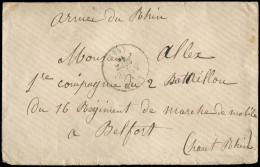 Armée du Rhin
Monsieur Allex
1re compagnie du 2 Bataillon
du 16 Régiment de marche de mobile
à Belfort
(Haut Rhin)